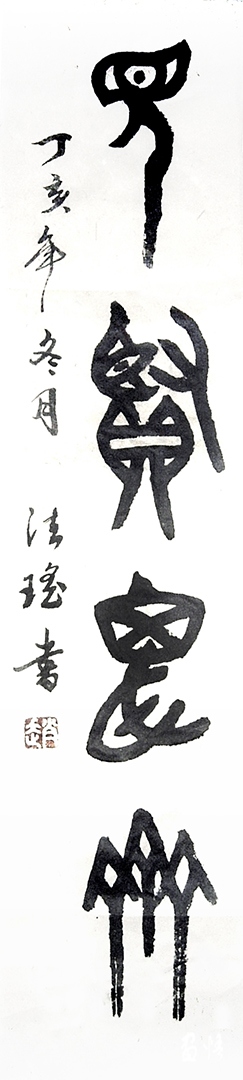 見賢思齊
丁亥年冬月 法瑤書